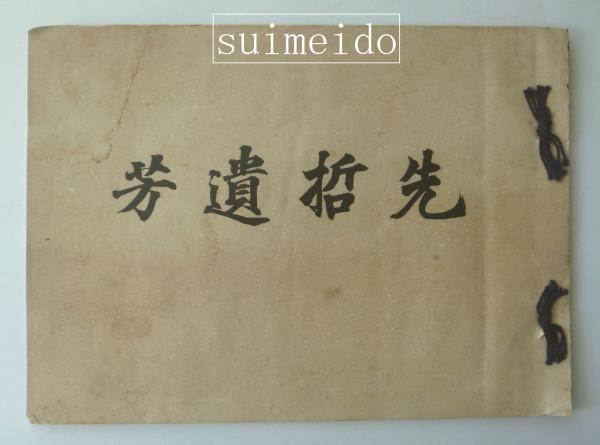 suimeido
先哲遺芳